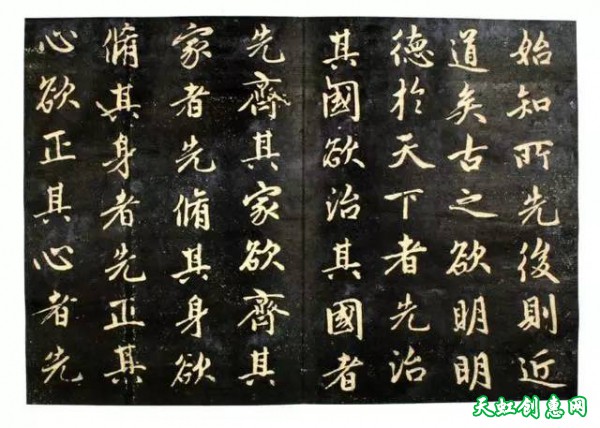 始知所先後則近
道矣古之欲明明
德於天下者先治
其國欲治其國者
先齊其家欲齊其
家者先脩其身欲
脩其身者先正其
心欲正其心者先
天虹创惠网